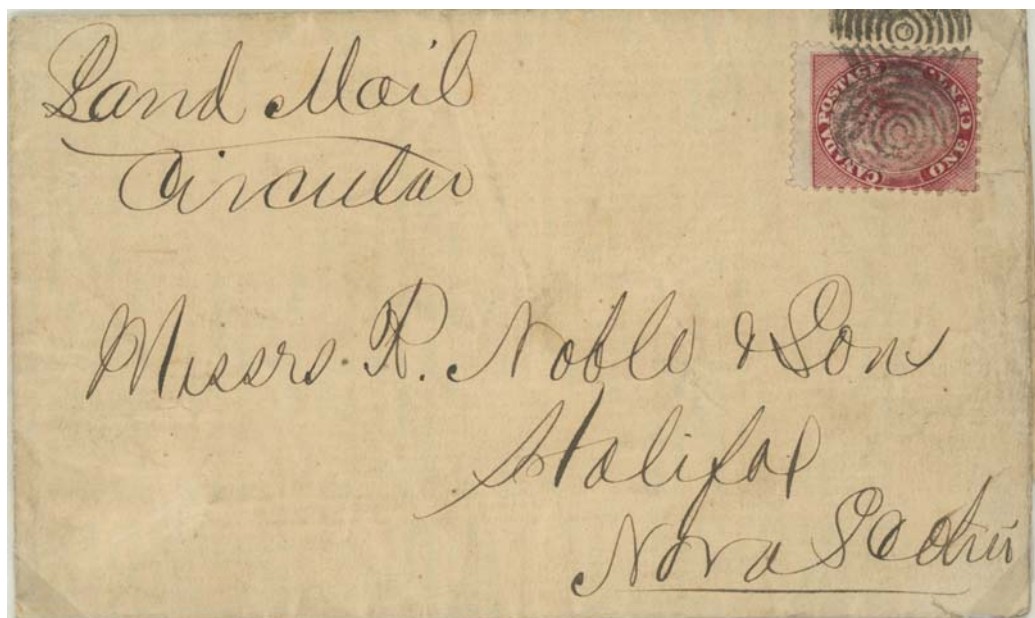 Land Mail
Circular
CANADA POSTAGE
ONE CEN
Messrs. R. Noble & Son
Halifax
Nova Scotia